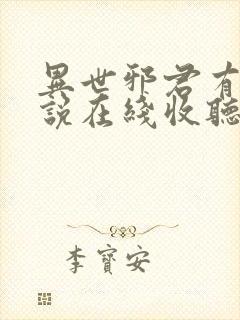 異世邪君有
說在綫收聽
李寶安